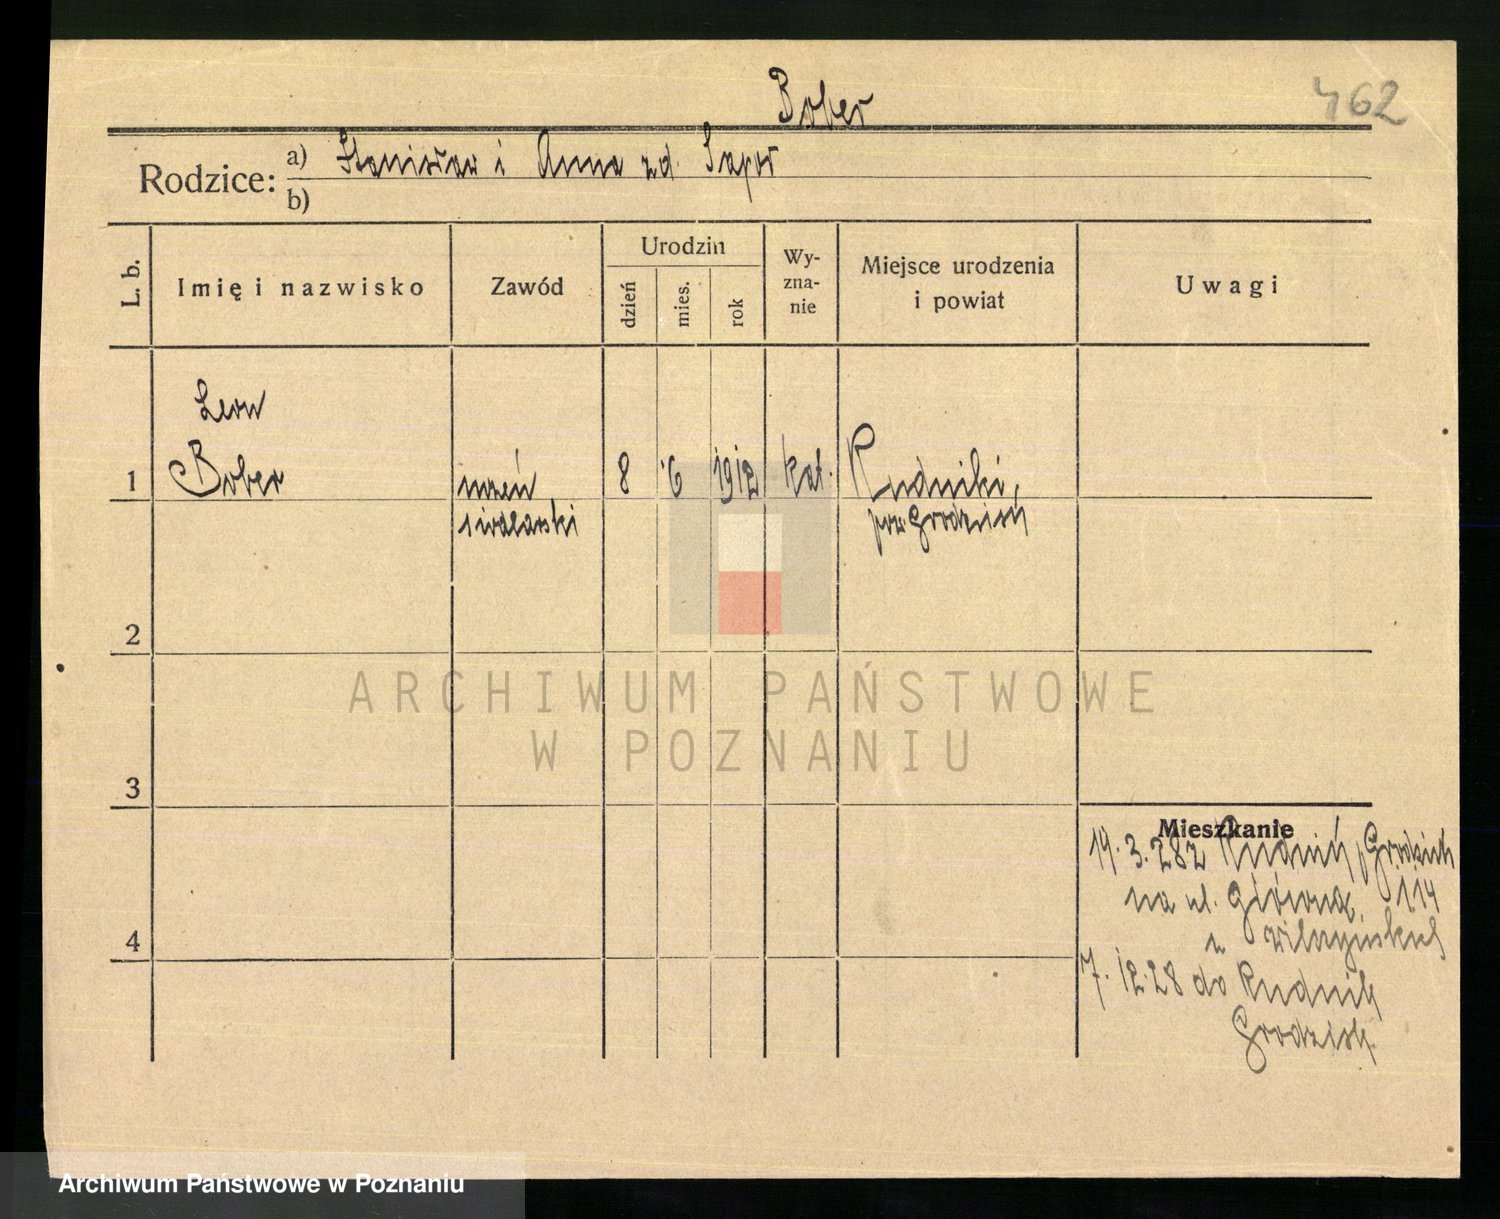 Bober
462
Rodzice: a) Stanisław i Anna zd. Sapor
b)
L. b.
Imię i nazwisko
Zawód
Urodzin
dzień
mies.
rok
Wy-
zna-
nie
Miejsce urodzenia
i powiat
Uwagi
Leon
1 Bober uczeń 8 6 1912 kat. Rudniki,
pow. Grodzisk
2
ARCHIWUM PAŃSTWOWE
W POZNANIU
3
Mieszkanie
19.3.28 z
na ul. Główną, 114
4
7.12.28 do Rudnik
Grodzisk
Archiwum Państwowe w Poznaniu